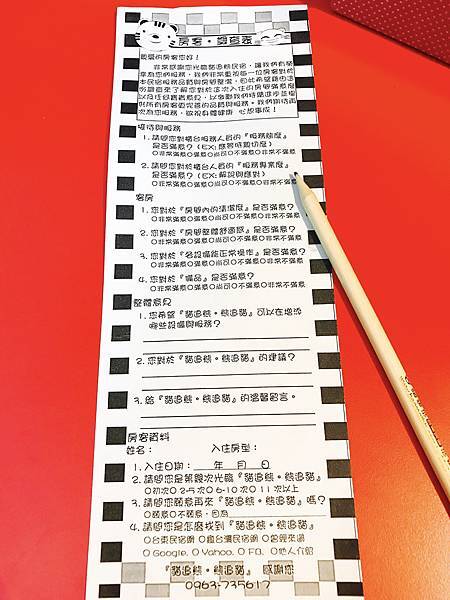 房客・調查表
親愛的房客您好!
非常感謝您光臨貓追熊民宿，讓我們有榮
幸為您們服務，我們非常重視每一位房客對於
本民宿服務品質與房間整潔，
以及任何寶貴意見，以後
好所有房客更完善的品質與服務。我們期待再
次為您服務，敬祝身體健康 心想事成!
接待與服務
1. 請問您對櫃台服務人員的『服務態度』
是否滿意?(EX:應答位親切度)
○非常滿意○滿意○尚可○不滿意○非常不滿意
2. 請問您對櫃台人員的『服務專業度』
是否滿意?(EX:解說與應對)
○非常滿意○滿意○尚可○不滿意○非常不滿意
客房
1. 您對於『房間內的清潔度』是否滿意?
○非常滿意○滿意○尚可○不滿意○非常不滿意
2. 您對於『房間整體舒適感』是否滿意?
○非常滿意○滿意○尚可○不滿意○非常不滿意
3. 您對於『各設備能正常操作』是否滿意?
○非常滿意○滿意○尚可○不滿意○非常不滿意
4. 您對於『備品』是否滿意?
○非常滿意○滿意○尚可○不滿意○非常不滿意
整體意見
1. 您希望『貓追熊。熊追貓』可以在增添
哪些設備與服務?
2. 您對於『貓追熊。熊追貓』的建議?
3. 給『貓追熊。熊追貓』的溫馨留言。
房客資料
姓名: 入住房型:
1. 入住日期: 年 月 日
2. 請問您是第幾次光臨『貓追熊。熊追貓』
○初次○2-5次○6-10次○11次以上
3. 請問您願意再來『貓追熊。熊追貓』嗎?
○願意○不願意，因為
4. 請問您是怎麼找到『貓追熊。熊追貓』
○台東民宿網○鐙台灣民宿網○曾經來過
○Google. ○Yahoo. ○FB. ○他人介紹
『貓追熊。熊追貓』 感謝您
0963-735617